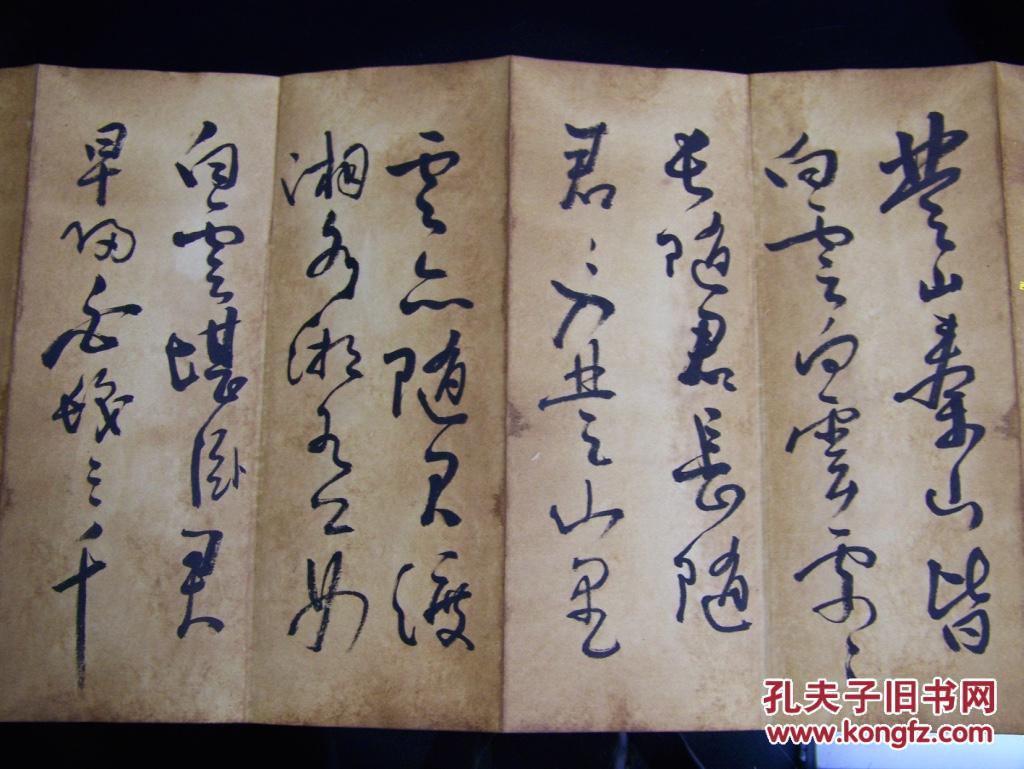 楚山秦山皆
白雲白雲處々
長隨君長隨
君々入楚山里
雲亦隨君渡
湘水湘水上女
白雲堪臥君
早歸白髮三千
孔夫子旧书网
www.kongfz.com